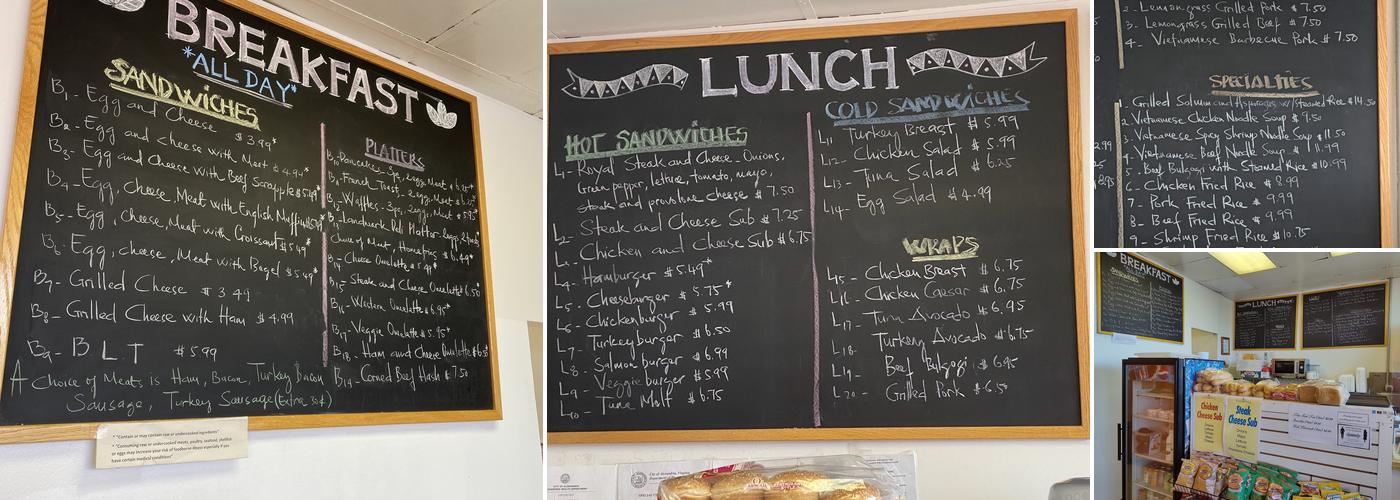 BREAKFAST
*ALL DAY*
SANDWICHES
B1- Egg and Cheese $3.99*
B2- Egg and cheese with Meat $4.99*
B3- Egg and Cheese with Beef Scrapple $5.49*
B4- Egg, cheese, Meat with English Muffin
B5- Egg, cheese, Meat with Croissant $5.49*
B6- Egg, cheese, Meat with Bagel $5.49*
B7- Grilled Cheese $3.49
B8- Grilled Cheese with Ham $4.99
B9- B L T $5.99
A Choice of Meats is Ham, Bacon, Turkey Bacon
Sausage, Turkey Sausage (Extra 30¢)
PLATTERS
Pancakes - 3ps, 2eggs, Meat
French Toast, 2eggs, Meat
Waffles - 3ps, 2eggs, Meat $5.95*
Landmark Deli Platter - 2eggs
Choice of Meat, Homefries $6.49*
B14 Cheese Omelette $5.99*
B15 Steak and Cheese Omelette $6.50*
B16- Western Omelette $6.95*
B17- Veggie Omelette $5.95*
B18- Ham and Cheese Omelette $6.50*
B19- Corned Beef Hash $7.50
* "Contain or may contain raw or undercooked ingredients"
* "Consuming raw or undercooked meats, poultry, seafood, shellfish
or eggs may increase your risk of foodborne illness especially if you
have certain medical conditions"
LUNCH
HOT SANDWICHES
L1- Royal Steak and Cheese - Onions,
Green pepper, lettuce, tomato, mayo,
steak and provolone cheese $7.50
L2- Steak and Cheese Sub $7.25
Chicken and Cheese Sub $6.75
L4- Hamburger $5.49*
L5- Cheeseburger $5.75*
L6- Chickenburger $5.99
L7- Turkeyburger $6.50
L8- Salmon burger $6.99
L9- Veggie burger $5.99
L10- Tuna Melt $6.75
COLD SANDWICHES
L11 Turkey Breast $5.99
L12- Chicken Salad $5.99
L13- Tuna Salad $6.25
L14- Egg Salad $4.99
WRAPS
L15- Chicken Breast $6.75
L16- Chicken Caesar $6.75
L17- Tuna Avocado $6.95
L18- Turkey Avocado $6.75
L19- Beef Bulgogi $6.95
L20- Grilled Pork $6.50
2- Lemongrass Grilled Pork $7.50
3- Lemongrass Grilled Beef $7.50
4- Vietnamese Barbecue Pork $7.50
SPECIALTIES
1. Grilled Salmon and Asparagus w/ Steamed Rice $14.50
2. Vietnamese Chicken Noodle Soup $9.50
3. Vietnamese Spicy Shrimp Noodle Soup $11.50
4- Vietnamese Beef Noodle Soup $11.99
5- Beef Bulgogi with Steamed Rice $10.99
6- Chicken Fried Rice $8.99
7- Pork Fried Rice $9.99
8- Beef Fried Rice $9.99
9- Shrimp Fried Rice $10.75
BREAKFAST
LUNCH
Chicken
Cheese Sub
Steak
Cheese Sub